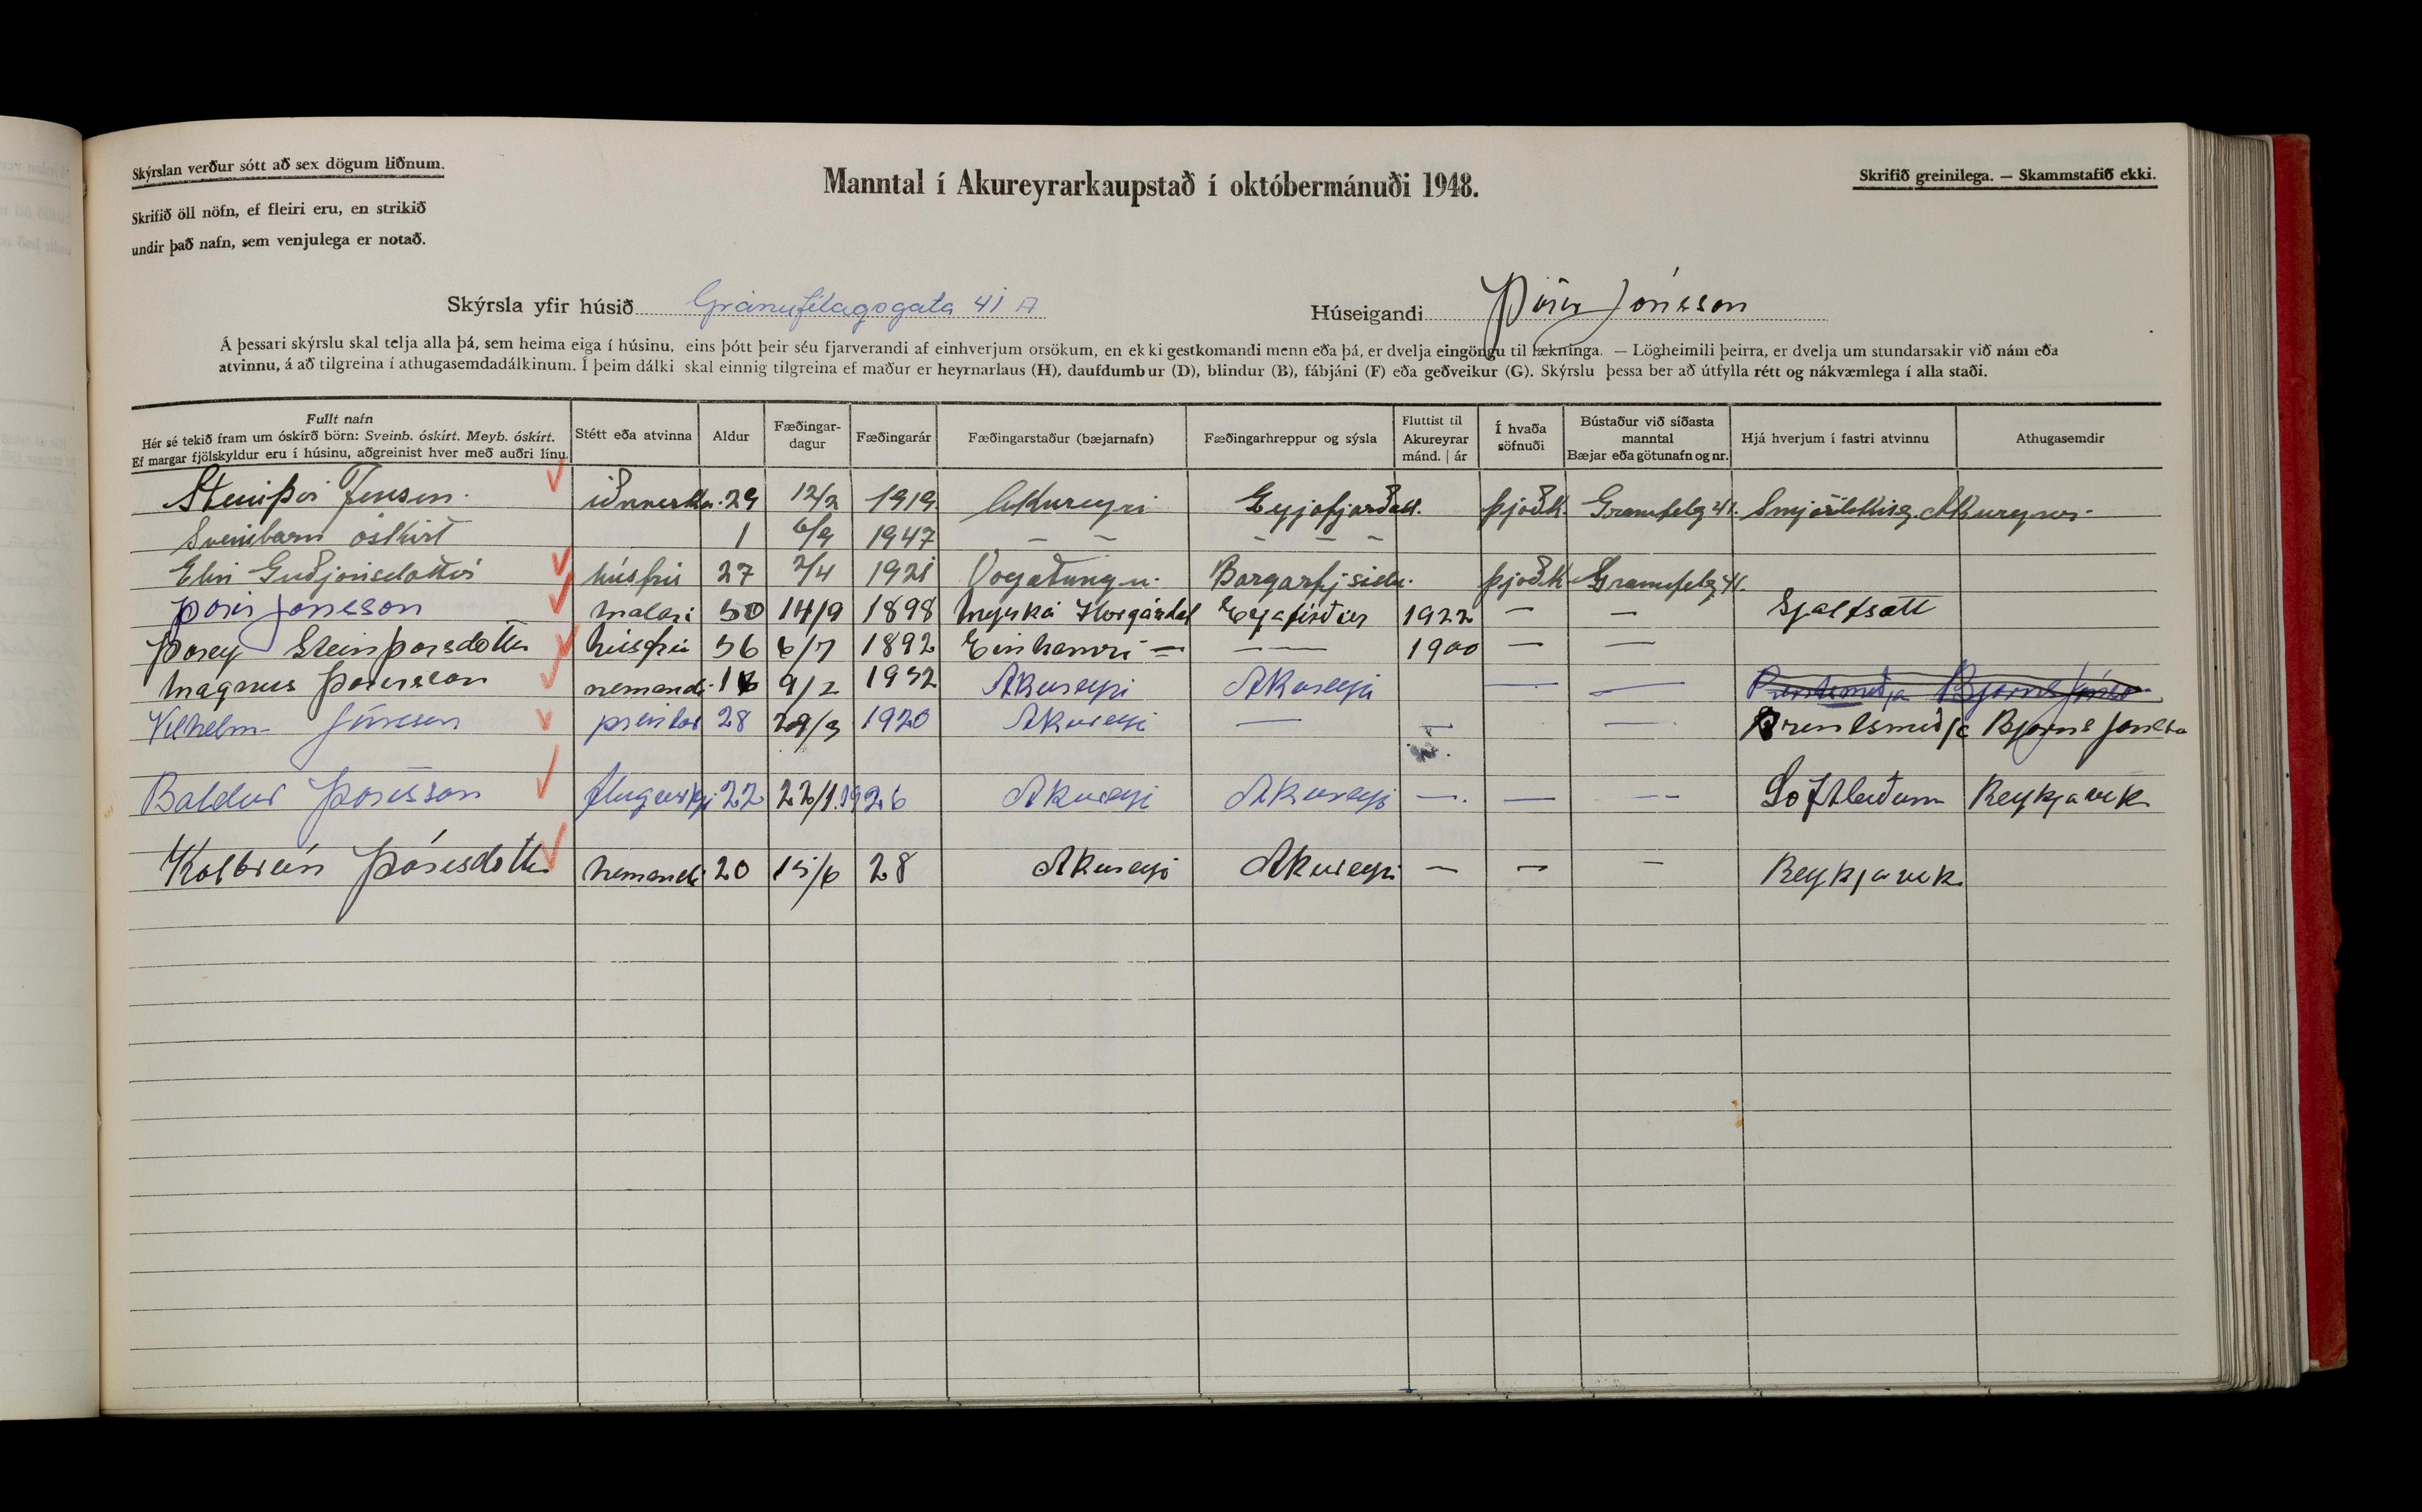 Skýrslan verður sótt að sex dögum liðnum.
Manntal í Akureyrarkaupstað í októbermánuði 1948.
Skrifið greinilega. — Skammstafið ekki.
Skrifið öll nöfn, ef fleiri eru, en strikið
undir það nafn, sem venjulega er notað.
Skýrsla yfir húsið Gránufélagsgata 41 A Húseigandi Þórir Jónsson
Á þessari skýrslu skal telja alla þá, sem heima eiga í húsinu, eins þótt þeir séu fjarverandi af einhverjum orsökum, en ekki gestkomandi menn eða þá, er dvelja eingöngu til lækninga. — Lögheimili þeirra, er dvelja um stundarsakir við nám eða
atvinnu, á að tilgreina í athugasemdadálkinum. Í þeim dálki skal einnig tilgreina ef maður er heyrnarlaus (H), daufdumbur (D), blindur (B), fábjáni (F) eða geðveikur (G). Skýrslu þessa ber að útfylla rétt og nákvæmlega í alla staði.
Fullt nafn
Hér sé tekið fram um óskírð börn: Sveinb. óskírt. Meyb. óskírt.
Ef margar fjölskyldur eru í húsinu, aðgreinist hver með auðri línu.
Stétt eða atvinna
Aldur
Fæðingar-
dagur
Fæðingarár
Fæðingarstaður (bæjarnafn)
Fæðingarhreppur og sýsla
Fluttist til
Akureyrar
mánd. | ár
Í hvaða
söfnuði
Bústaður við síðasta
manntal
Bæjar eða götunafn og nr.
Hjá hverjum í fastri atvinnu
Athugasemdir
Steinþór Jensen. iðnverkm. 29 12/2 1919 Akureyri Eyjafjarðars. þjóðk. Gránufelg 41. Smjörlíkisg. Akureyrar
Sveinbarn óskírt 1 6/9 1947 — — — — —
Elín Guðjónsdóttir húsfrú 27 2/4 1921 Vogatungu. Borgarfj.sídu. þjóðk. Gránufelg 41.
Þórir Jónsson malari 50 14/9 1898 Hörgárdal Eyafirðir 1922 — — Sjalfsætt
Þórey Steinþorsdóttir húsfrú 56 6/7 1892 Einhamri — — — 1900 — —
Magnus Þorirsson nemandi 16 9/2 1932 Akureyri Akureyri — — Prentsmiðja Bjorns Jónss
Vilhelm Jensen prentar 28 29/3 1920 Akureyri — — — Prentsmiðja Bjorns Jonsso
Baldur Þorisson flugvirki 22 22/1. 1926 Akureyri Akureyri —. — — Loftleiðum Reykjavik
Kolbrún Þórisdóttir nemandi 20 15/6 28 Akureyri Akureyri — — — Reykjavik